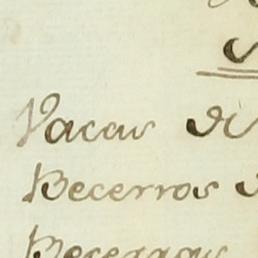 Vacas de
Becerros
Becerras